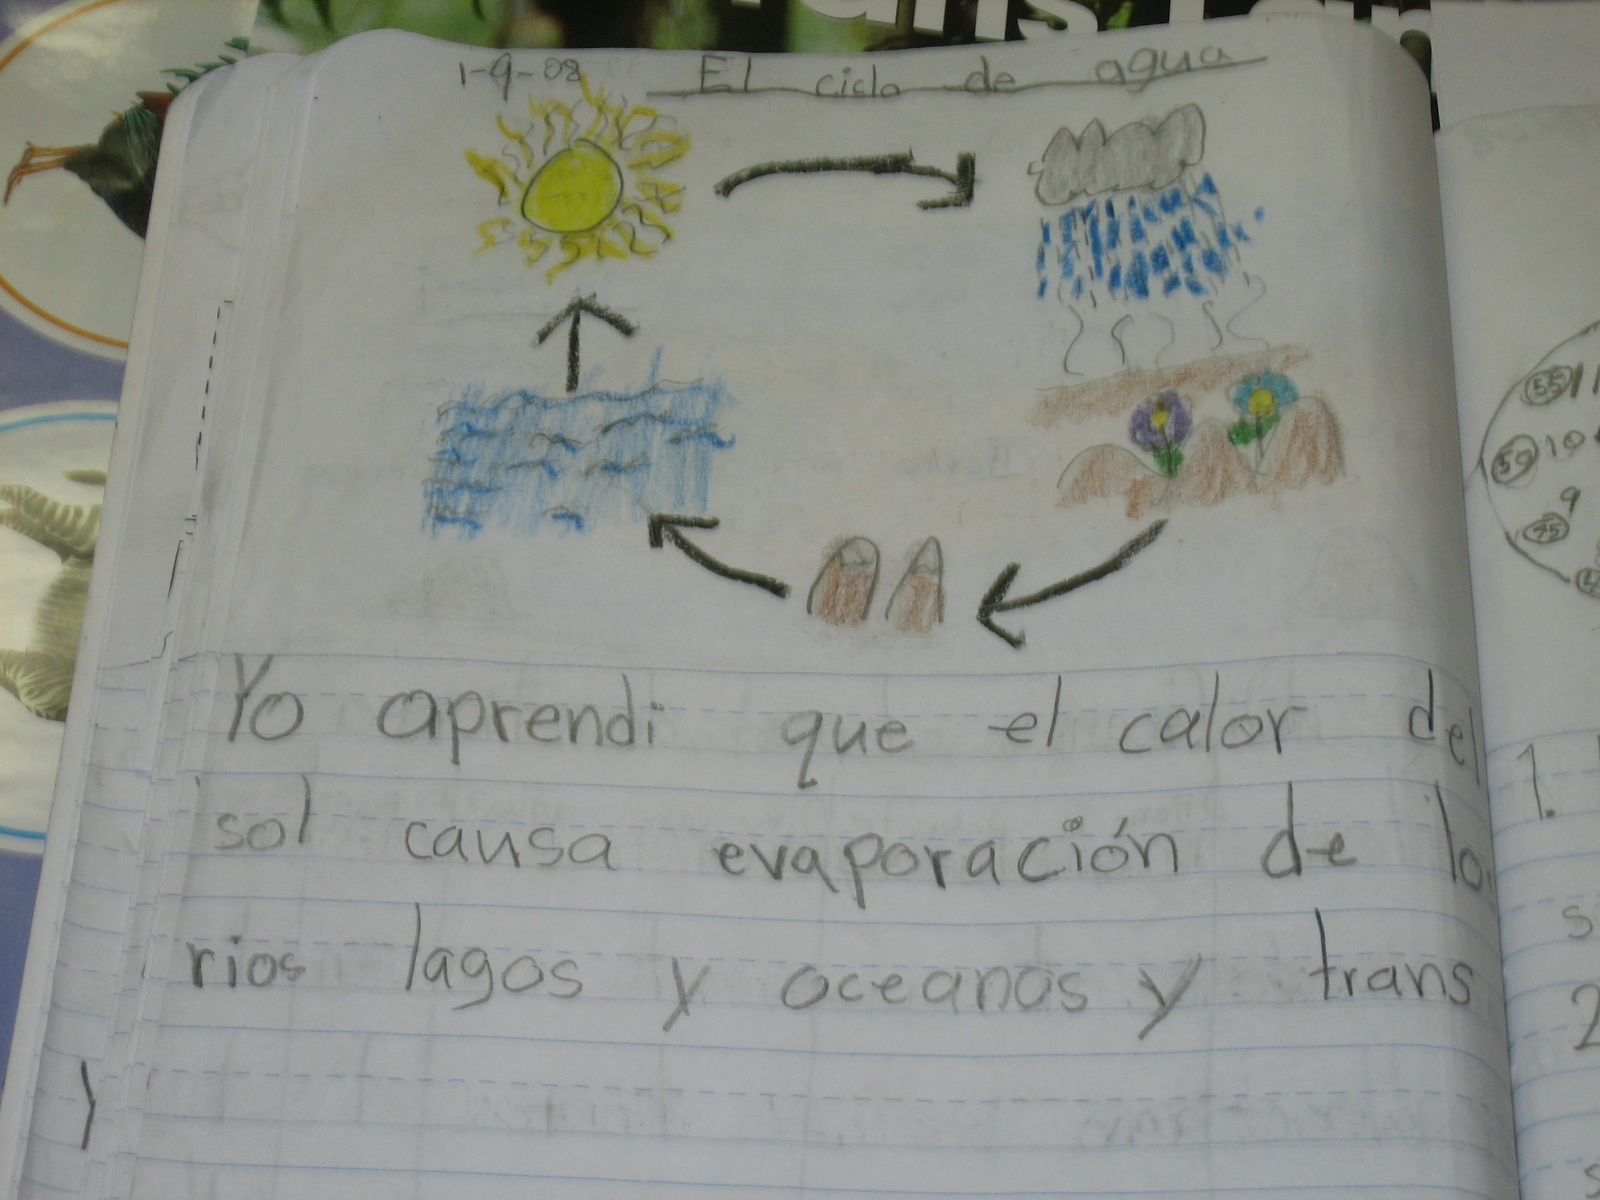 1-9-08 El ciclo de agua
Yo aprendi que el calor del
sol causa evaporación de lo
rios lagos y oceanos y trans
55 11
50 10
9
45
1.
s
2